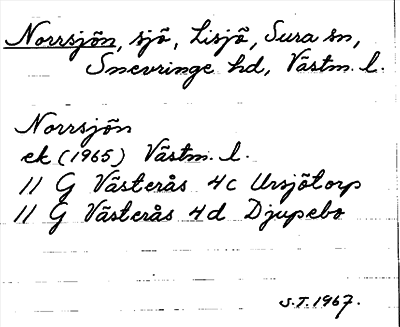 Norrsjön, sjö, Lisjö, Sura sn,
Snevringe hd, Västm. l.
Norrsjön
ek (1965) Västm. l.
11 G Västerås 4c Ursjötorp
11 G Västerås 4d Djupebo
S.T. 1967.